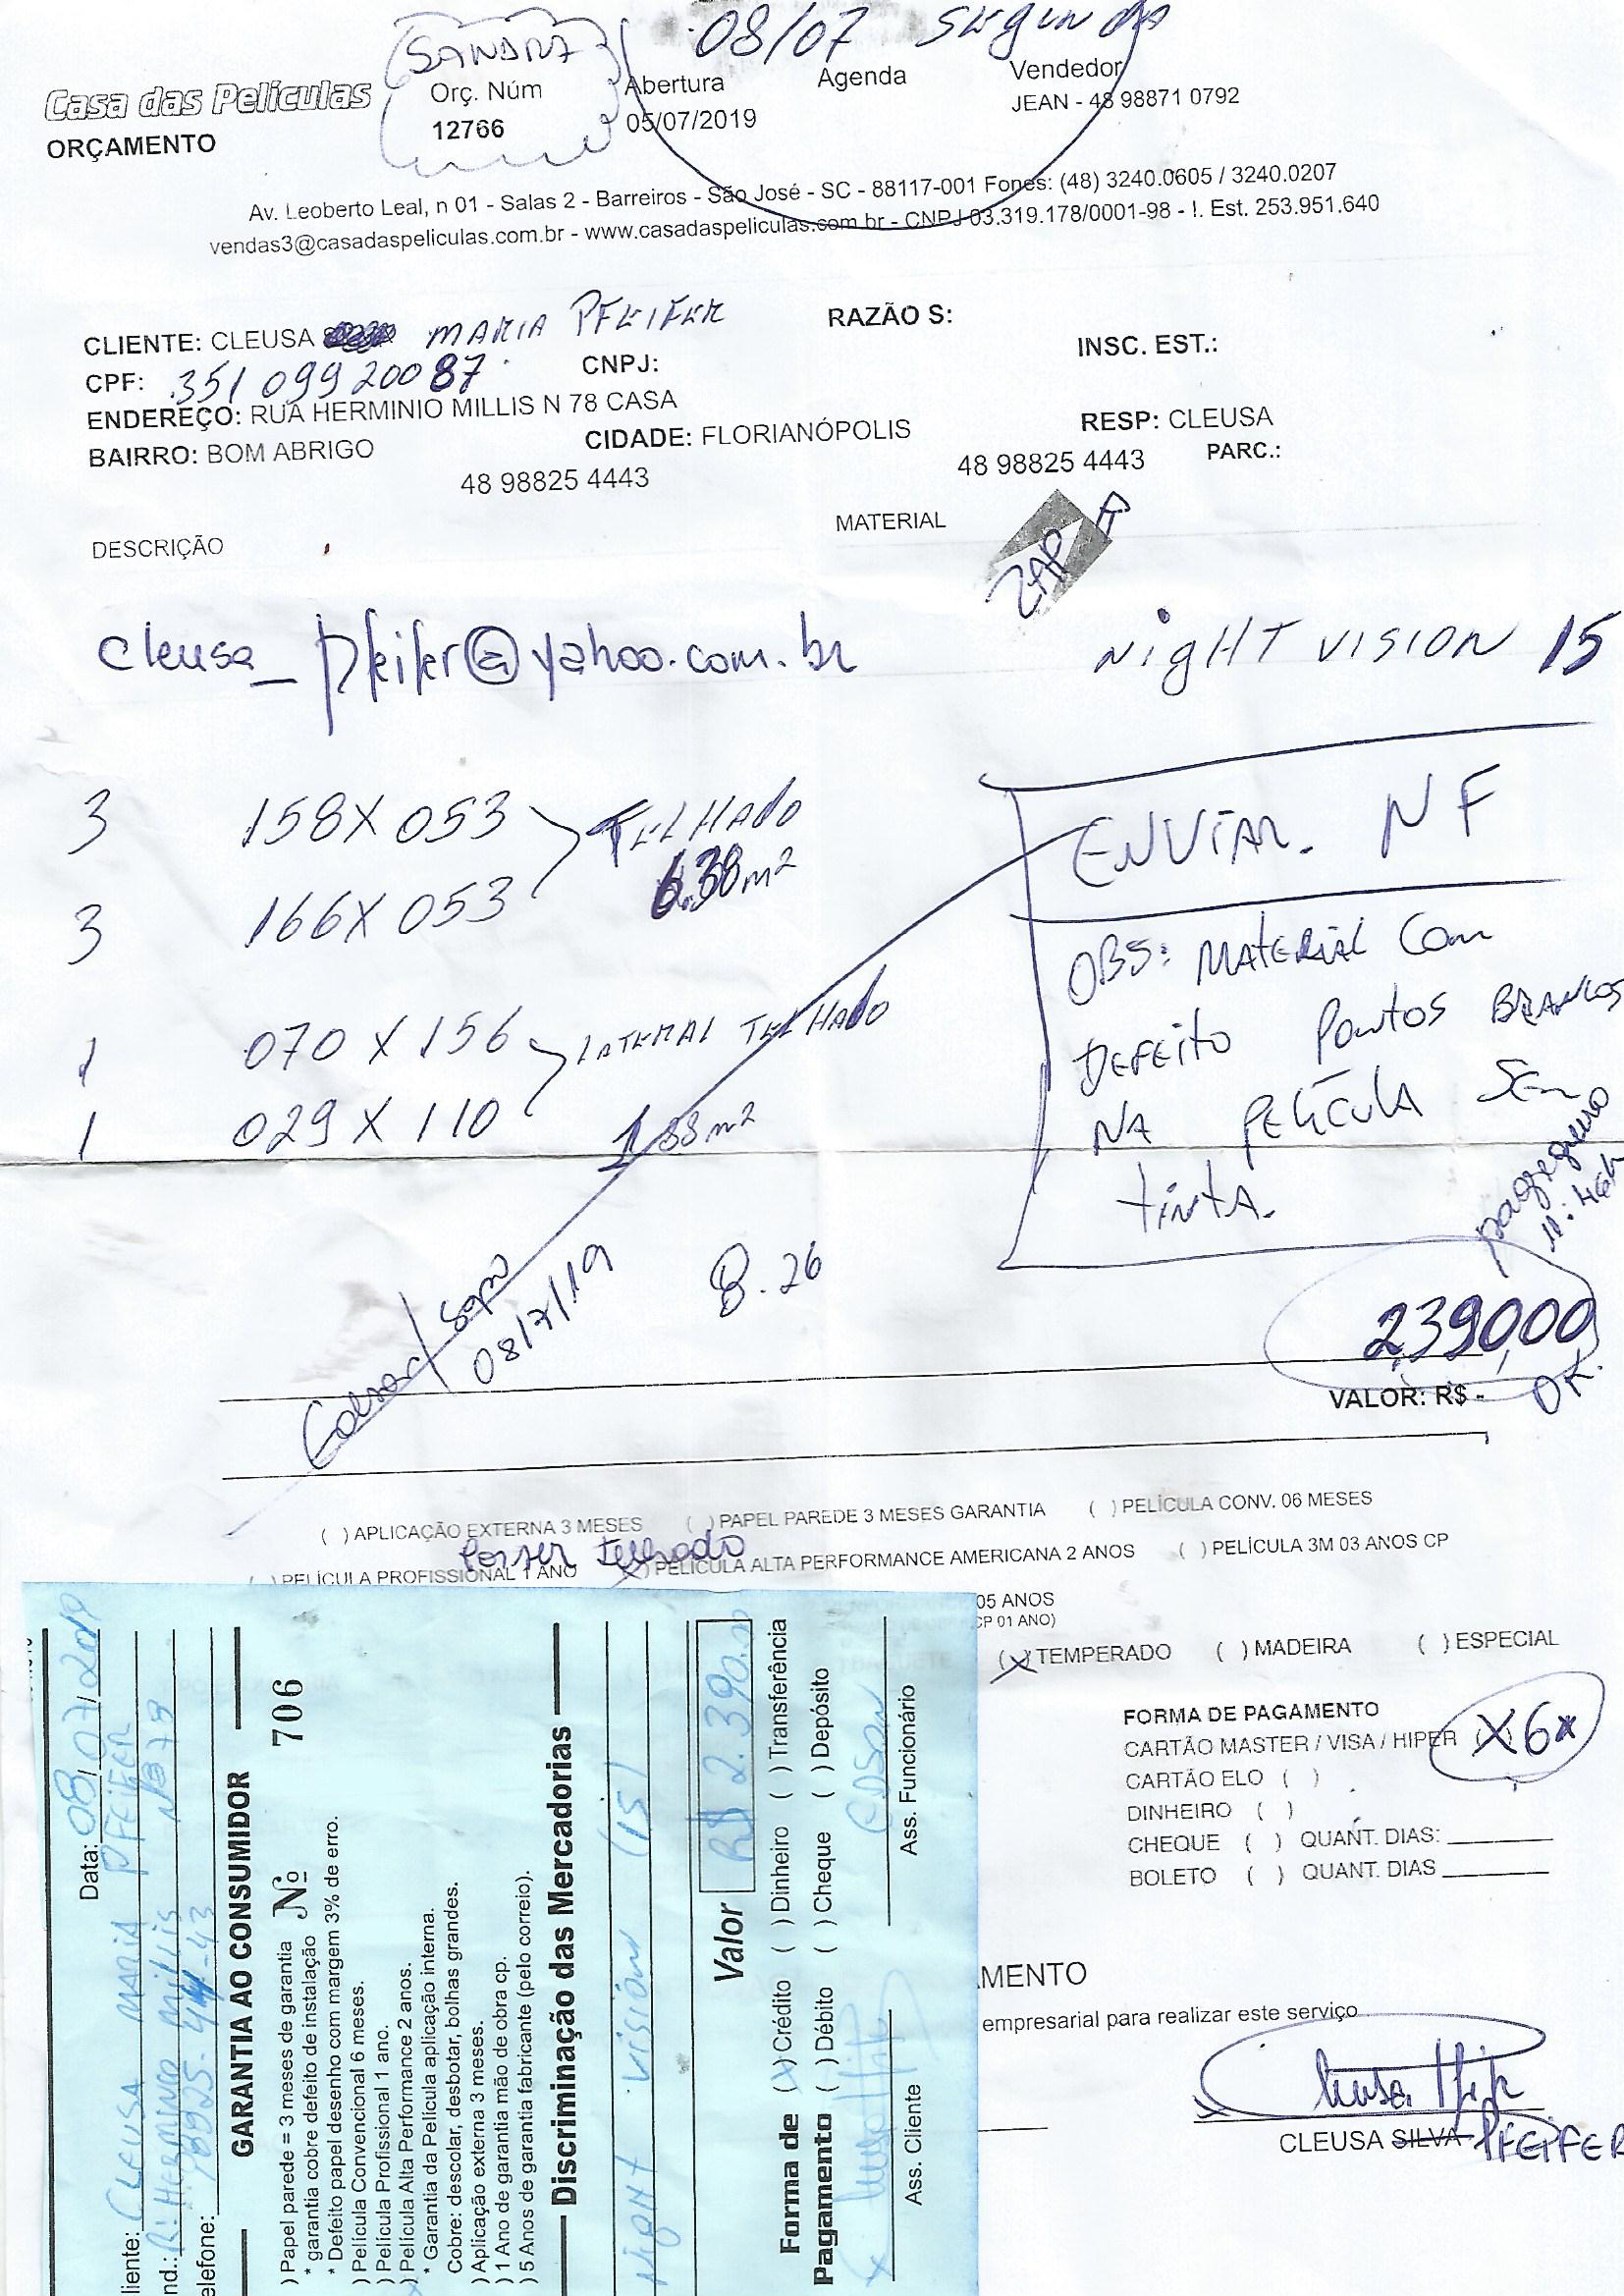 SANDRA
08/07 SEGUNDA
Casa das Películas
ORÇAMENTO
Orç. Núm
12766
Abertura
05/07/2019
Agenda
Vendedor
JEAN - 48 98871 0792
Av. Leoberto Leal, n 01 - Salas 2 - Barreiros - São José - SC - 88117-001 Fones: (48) 3240.0605 / 3240.0207
vendas3@casadaspeliculas.com.br - www.casadaspeliculas.com.br - CNPJ 03.319.178/0001-98 - !. Est. 253.951.640
CLIENTE: CLEUSA MARIA PFEIFER
RAZÃO S:
CPF: 351 099 200 87
CNPJ:
INSC. EST.:
ENDEREÇO: RUA HERMINIO MILLIS N 78 CASA
BAIRRO: BOM ABRIGO
CIDADE: FLORIANÓPOLIS
RESP: CLEUSA
48 98825 4443
48 98825 4443
PARC.:
DESCRIÇÃO
MATERIAL
ZAP
cleusa_pfeifer@yahoo.com.br
NigHT VISION 15
3 158X053 TELHADO
6.38m2
3 166X053
1 070 X 156 LATERAL TELHADO
1 029 X 110
1,88m2
ENVIAR. NF
OBS: MATERIAL Com
DEFEITO PONTOS BRANCOS
NA PELÍCULA SEM
TINTA.
08/7/19
8.26
2,390,00
OK.
VALOR: R$ -
( ) APLICAÇÃO EXTERNA 3 MESES ( ) PAPEL PAREDE 3 MESES GARANTIA ( ) PELÍCULA CONV. 06 MESES
Telhado
( ) PELÍCULA PROFISSIONAL 1 ANO (X) PELÍCULA ALTA PERFORMANCE AMERICANA 2 ANOS ( ) PELÍCULA 3M 03 ANOS CP
05 ANOS
CP 01 ANO)
(X) TEMPERADO ( ) MADEIRA ( ) ESPECIAL
FORMA DE PAGAMENTO
CARTÃO MASTER / VISA / HIPER (X) 6x
CARTÃO ELO ( )
DINHEIRO ( )
CHEQUE ( ) QUANT. DIAS:
BOLETO ( ) QUANT. DIAS
AMENTO
empresarial para realizar este serviço
CLEUSA SILVA PFEIFER
Data: 08/07/2019
liente: CLEUSA MARIA PFEIFER
nd.: R: HERMINIO Millis Nº 78
elefone: 98825-44-43
GARANTIA AO CONSUMIDOR
) Papel parede = 3 meses de garantia Nº 706
* garantia cobre defeito de instalação
* Defeito papel desenho com margem 3% de erro.
) Película Convencional 6 meses.
) Película Profissional 1 ano.
) Película Alta Performance 2 anos.
* Garantia da Película aplicação interna.
Cobre: descolar, desbotar, bolhas grandes.
) Aplicação externa 3 meses.
) 1 Ano de garantia mão de obra cp.
) 5 Anos de garantia fabricante (pelo correio).
Discriminação das Mercadorias
NigHt Vision (15)
Valor R$ 2.390,00
Forma de Pagamento
(X) Crédito ( ) Dinheiro ( ) Transferência
( ) Débito ( ) Cheque ( ) Depósito
EDSON
Ass. Cliente
Ass. Funcionário